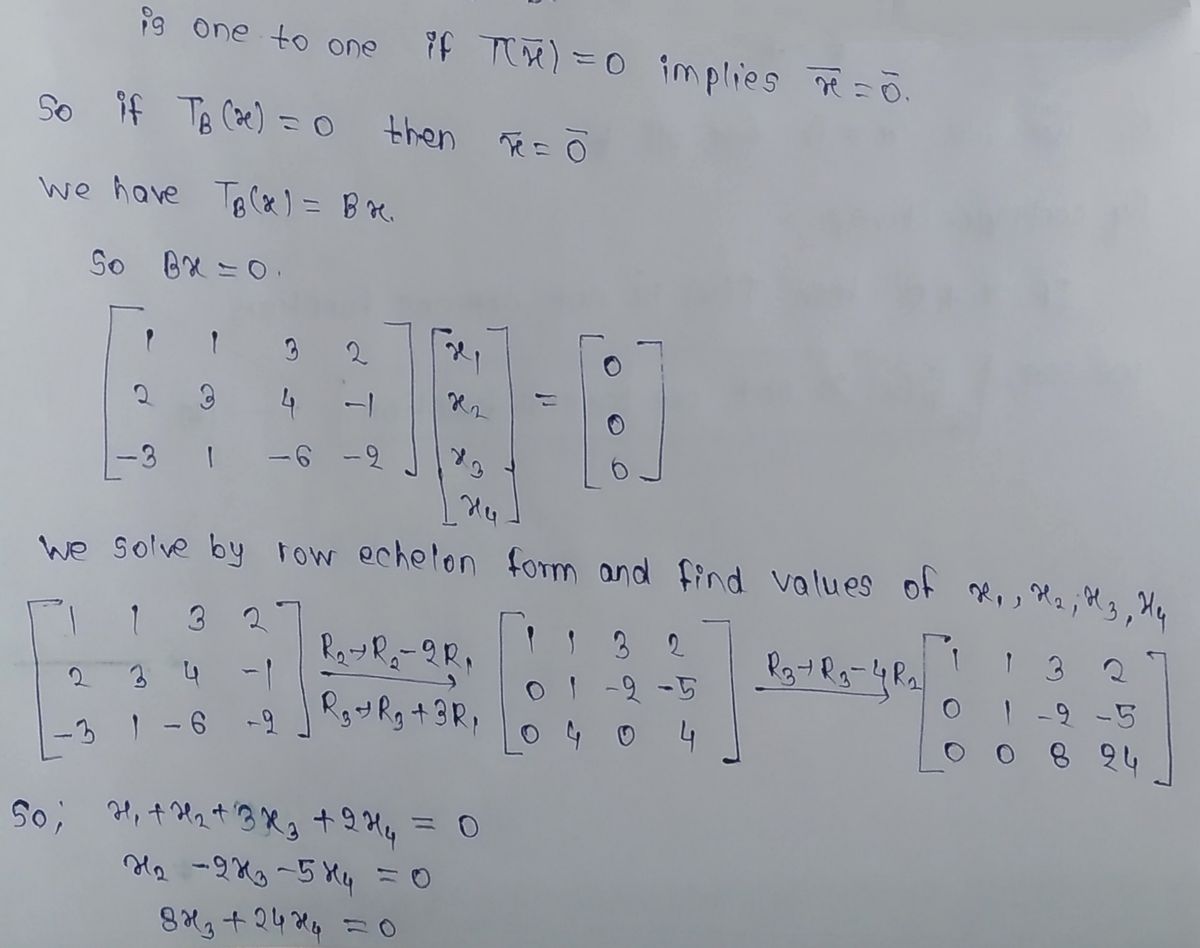 is one to one if T(x̄) = 0 implies x̄ = 0̄.
So if T_B(x) = 0 then x̄ = 0̄
We have T_B(x) = Bx.
So Bx = 0.
[1 1 3 2; 2 3 4 -1; -3 1 -6 -2] [x₁; x₂; x₃; x₄] = [0; 0; 0]
We solve by row echelon form and find values of x₁, x₂, x₃, x₄
[1 1 3 2; 2 3 4 -1; -3 1 -6 -2] R₂→R₂-2R₁ R₃→R₃+3R₁ [1 1 3 2; 0 1 -2 -5; 0 4 0 4] R₃→R₃-4R₂ [1 1 3 2; 0 1 -2 -5; 0 0 8 24]
So; x₁ + x₂ + 3x₃ + 2x₄ = 0
x₂ - 2x₃ - 5x₄ = 0
8x₃ + 24x₄ = 0